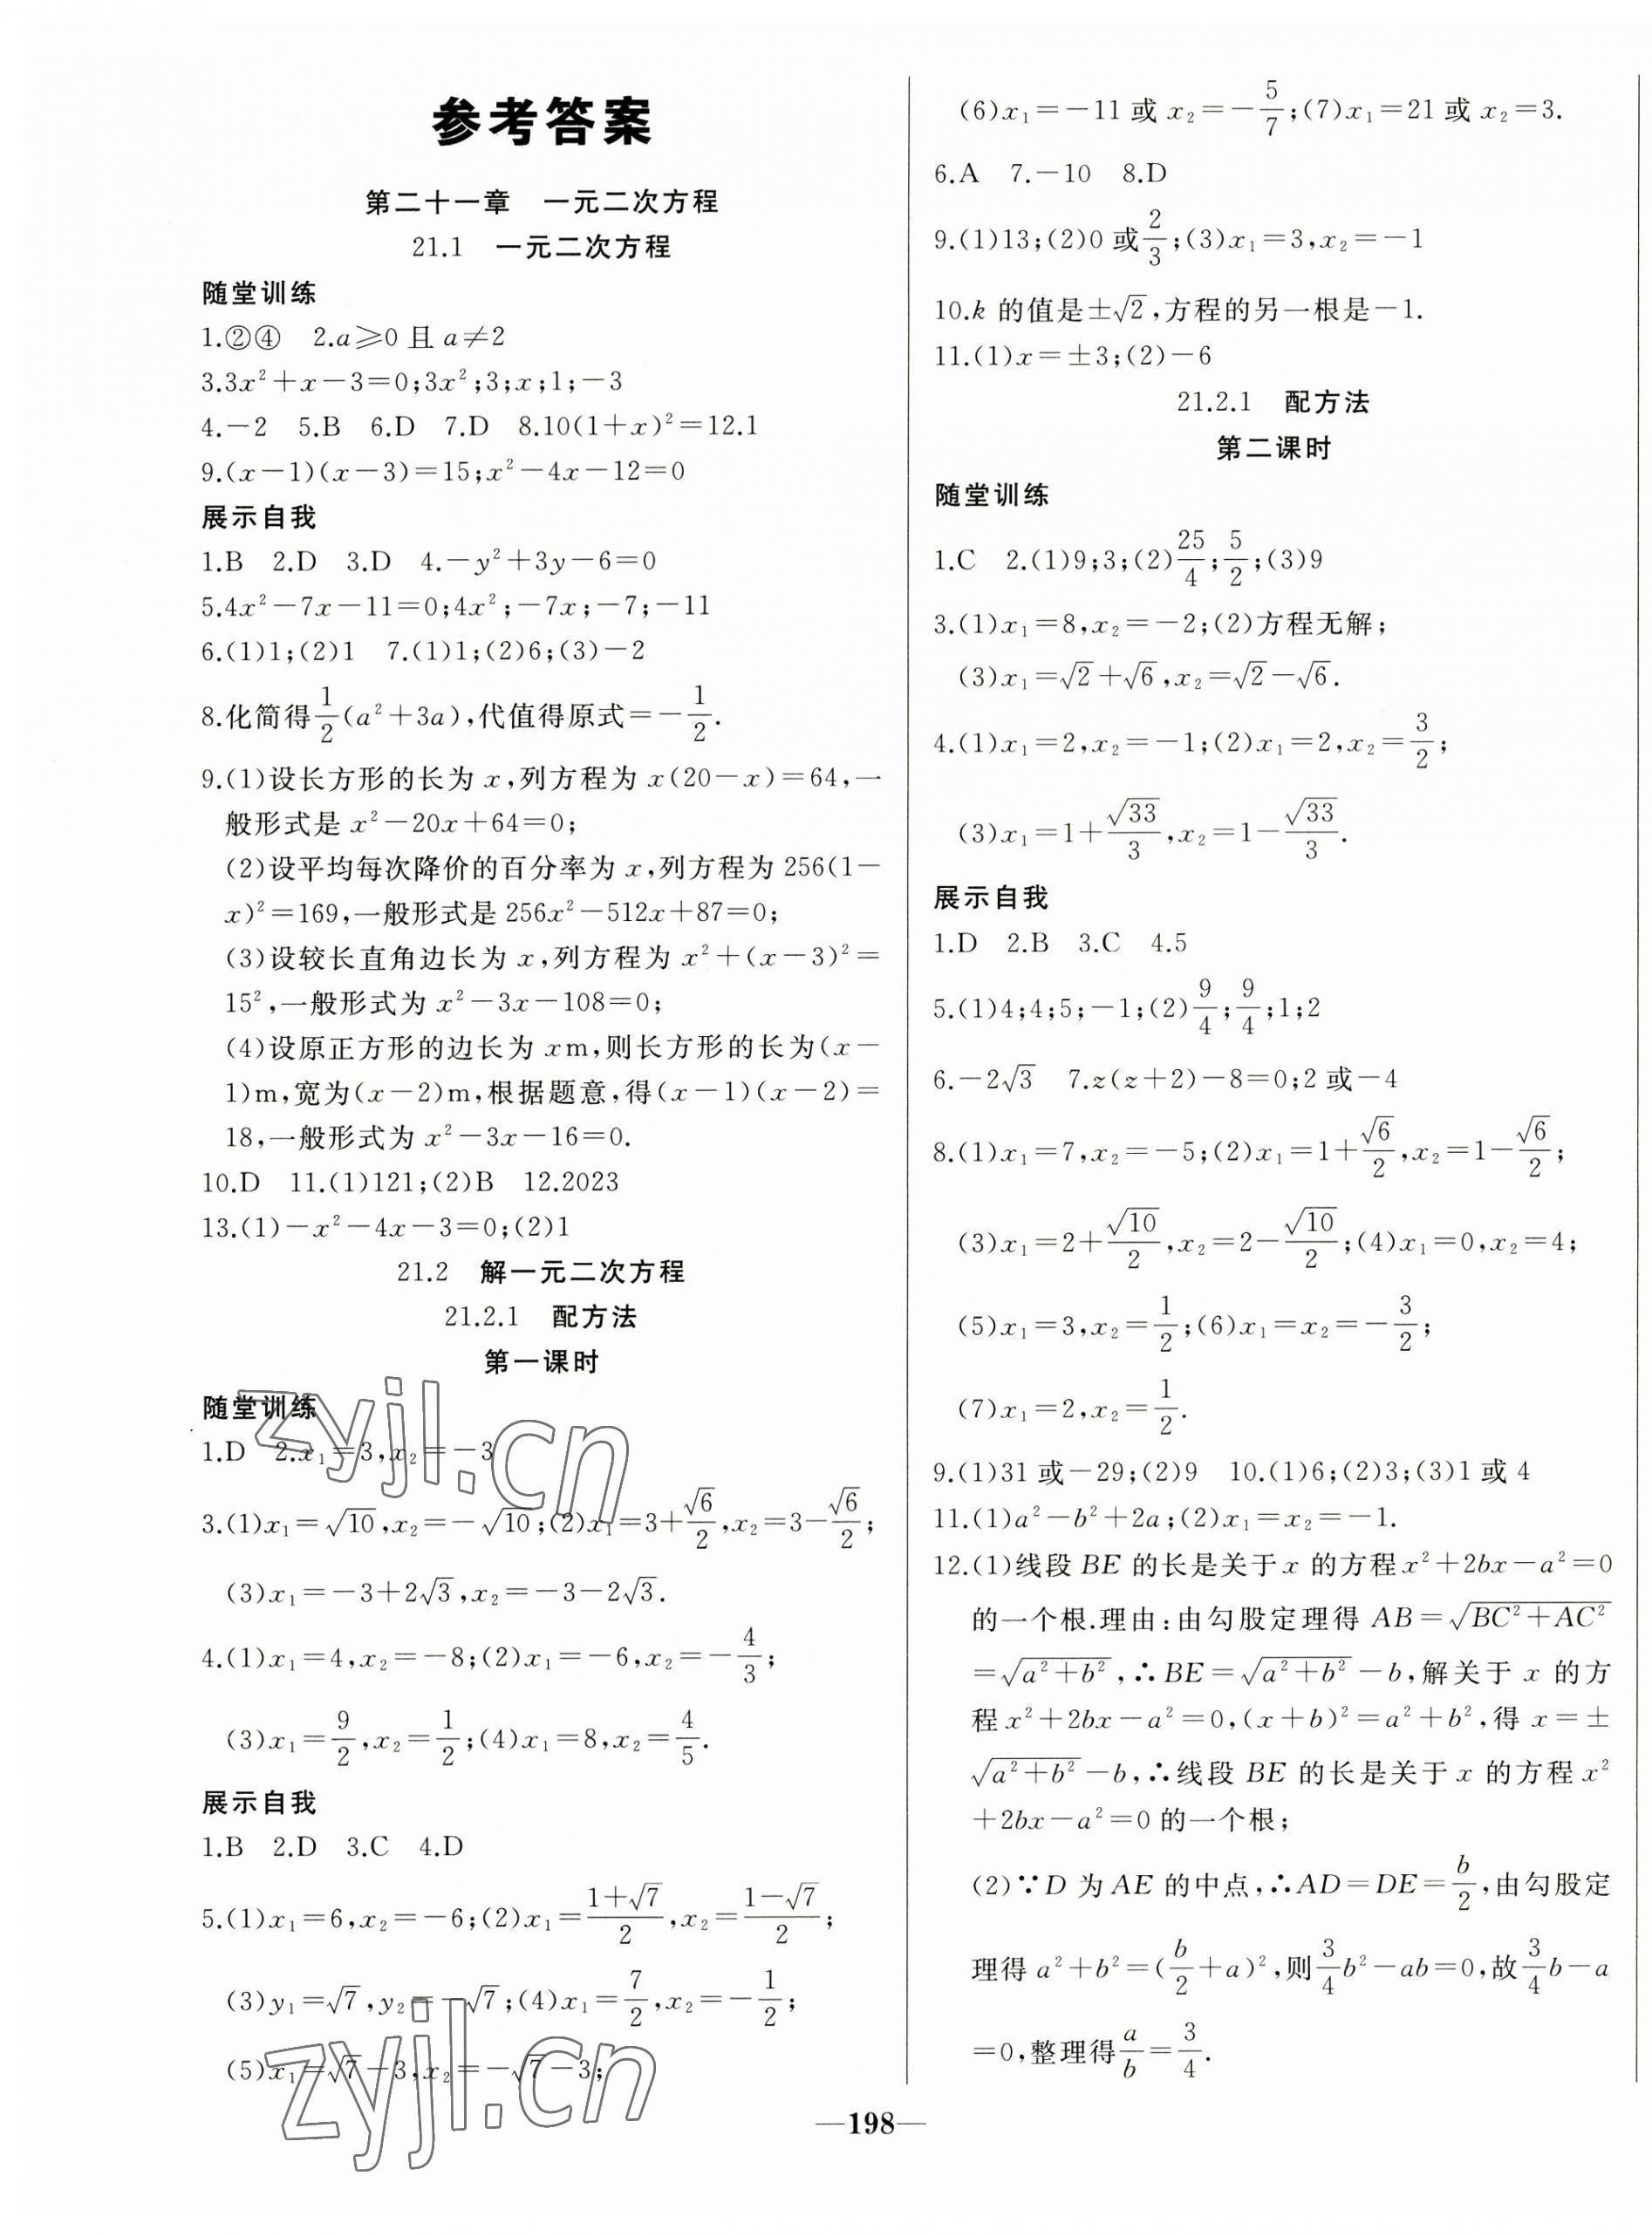 参考答案
第二十一章　一元二次方程
21.1　一元二次方程
随堂训练
1.②④　2.a⩾0 且 a≠2
3.3x²+x-3=0;3x²;3;x;1;-3
4.-2　5.B　6.D　7.D　8.10(1+x)²=12.1
9.(x-1)(x-3)=15;x²-4x-12=0
展示自我
1.B　2.D　3.D　4.-y²+3y-6=0
5.4x²-7x-11=0;4x²;-7x;-7;-11
6.(1)1;(2)1　7.(1)1;(2)6;(3)-2
8.化简得1/2(a²+3a),代值得原式=-1/2.
9.(1)设长方形的长为 x,列方程为 x(20-x)=64,一
般形式是 x²-20x+64=0;
(2)设平均每次降价的百分率为 x,列方程为 256(1-
x)²=169,一般形式是 256x²-512x+87=0;
(3)设较长直角边长为 x,列方程为 x²+(x-3)²=
15²,一般形式为 x²-3x-108=0;
(4)设原正方形的边长为 x m,则长方形的长为(x-
1)m,宽为(x-2)m,根据题意,得(x-1)(x-2)=
18,一般形式为 x²-3x-16=0.
10.D　11.(1)121;(2)B　12.2023
13.(1)-x²-4x-3=0;(2)1
21.2　解一元二次方程
21.2.1　配方法
第一课时
随堂训练
1.D　2.x₁=3,x₂=-3
3.(1)x₁=√10,x₂=-√10;(2)x₁=3+√6/2,x₂=3-√6/2;
(3)x₁=-3+2√3,x₂=-3-2√3.
4.(1)x₁=4,x₂=-8;(2)x₁=-6,x₂=-4/3;
(3)x₁=9/2,x₂=1/2;(4)x₁=8,x₂=4/5.
展示自我
1.B　2.D　3.C　4.D
5.(1)x₁=6,x₂=-6;(2)x₁=(1+√7)/2,x₂=(1-√7)/2;
(3)y₁=√7,y₂=-√7;(4)x₁=7/2,x₂=-1/2;
(5)x₁=√7-3,x₂=-√7-3;
(6)x₁=-11 或 x₂=-5/7;(7)x₁=21 或 x₂=3.
6.A　7.-10　8.D
9.(1)13;(2)0 或2/3;(3)x₁=3,x₂=-1
10.k 的值是±√2,方程的另一根是-1.
11.(1)x=±3;(2)-6
21.2.1　配方法
第二课时
随堂训练
1.C　2.(1)9;3;(2)25/4;5/2;(3)9
3.(1)x₁=8,x₂=-2;(2)方程无解;
(3)x₁=√2+√6,x₂=√2-√6.
4.(1)x₁=2,x₂=-1;(2)x₁=2,x₂=3/2;
(3)x₁=1+√33/3,x₂=1-√33/3.
展示自我
1.D　2.B　3.C　4.5
5.(1)4;4;5;-1;(2)9/4;9/4;1;2
6.-2√3　7.z(z+2)-8=0;2 或-4
8.(1)x₁=7,x₂=-5;(2)x₁=1+√6/2,x₂=1-√6/2;
(3)x₁=2+√10/2,x₂=2-√10/2;(4)x₁=0,x₂=4;
(5)x₁=3,x₂=1/2;(6)x₁=x₂=-3/2;
(7)x₁=2,x₂=1/2.
9.(1)31 或-29;(2)9　10.(1)6;(2)3;(3)1 或 4
11.(1)a²-b²+2a;(2)x₁=x₂=-1.
12.(1)线段 BE 的长是关于 x 的方程 x²+2bx-a²=0
的一个根.理由:由勾股定理得 AB=√(BC²+AC²)
=√(a²+b²),∴BE=√(a²+b²)-b,解关于 x 的方
程 x²+2bx-a²=0,(x+b)²=a²+b²,得 x=±
√(a²+b²)-b,∴线段 BE 的长是关于 x 的方程 x²
+2bx-a²=0 的一个根;
(2)∵D 为 AE 的中点,∴AD=DE=b/2,由勾股定
理得 a²+b²=(b/2+a)²,则3/4b²-ab=0,故3/4b-a
=0,整理得a/b=3/4.
—198—
zyjl.cn
zyjl.cn